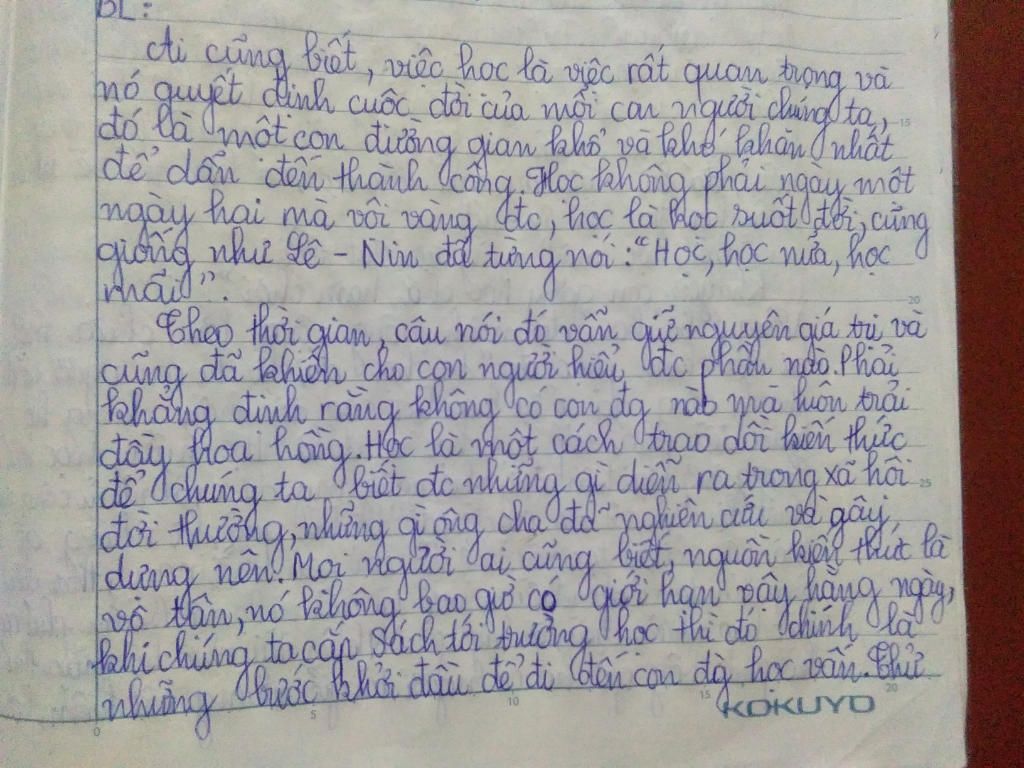 BL:
Ai cũng biết, việc học là việc rất quan trọng và
nó quyết định cuộc đời của mỗi con người chúng ta,
đó là một con đường gian khổ và khó khăn nhất
để dẫn đến thành công. Học không phải ngày một
ngày hai mà vội vàng đc, học là học suốt đời, cũng
giống như Lê - Nin đã từng nói: "Học, học nữa, học
mãi".
Theo thời gian, câu nói đó vẫn giữ nguyên giá trị và
cũng đã khiến cho con người hiểu đc phần nào. Phải
khẳng định rằng không có con đg nào mà luôn trải
đầy hoa hồng. Học là một cách trao dồi kiến thức
để chúng ta biết đc những gì diễn ra trong xã hội
đời thường, những gì ông cha đã nghiên cứu và gây
dựng nên. Mọi người ai cũng biết, nguồn kiến thức là
vô tận, nó không bao giờ có giới hạn vậy hằng ngày,
khi chúng ta cắp sách tới trường học thì đó chính là
những bước khởi đầu để đi đến con đg học vấn. Thử
0 5 10 15 20
15
20
25
KOKUYO